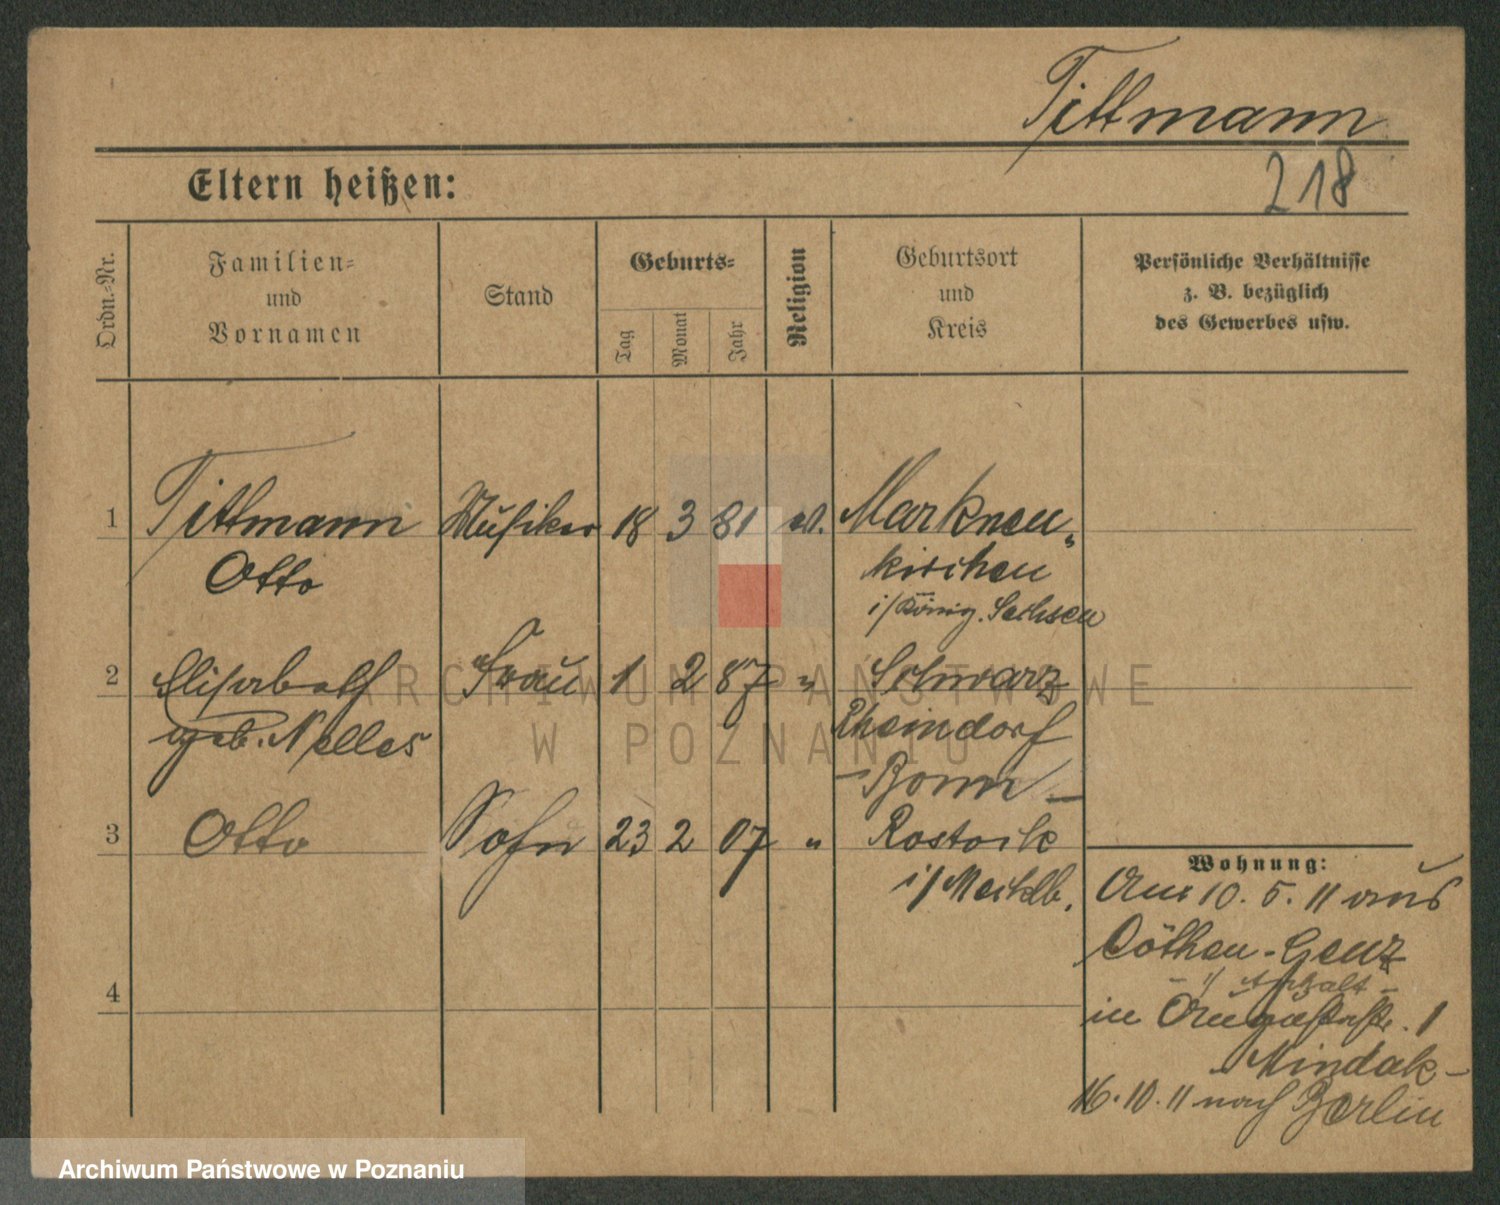 Tittmann
Eltern heißen:
218
Ordn.-Nr.
Familien- und Vornamen
Stand
Geburts-
Tag
Monat
Jahr
Religion
Geburtsort und Kreis
Persönliche Verhältnisse
z. B. bezüglich
des Gewerbes usw.
1 Tittmann Musiker 18 3 81 ev. Markneu-
Otto kirchen
i/König. Sachsen
2 Elisabeth Frau 1 2 87 " Schwarz
geb. Nelles Rheindorf
- Bonn -
3 Otto Sohn 23 2 07 " Rostock
i/Mecklb.
4
Wohnung:
Am 10. 5. 11 aus
Cöthen - Genz
- i/ Anhalt -
in Augustastr. 1
16. 10. 11 nach Berlin
ARCHIWUM PAŃSTWOWE
W POZNANIU
Archiwum Państwowe w Poznaniu